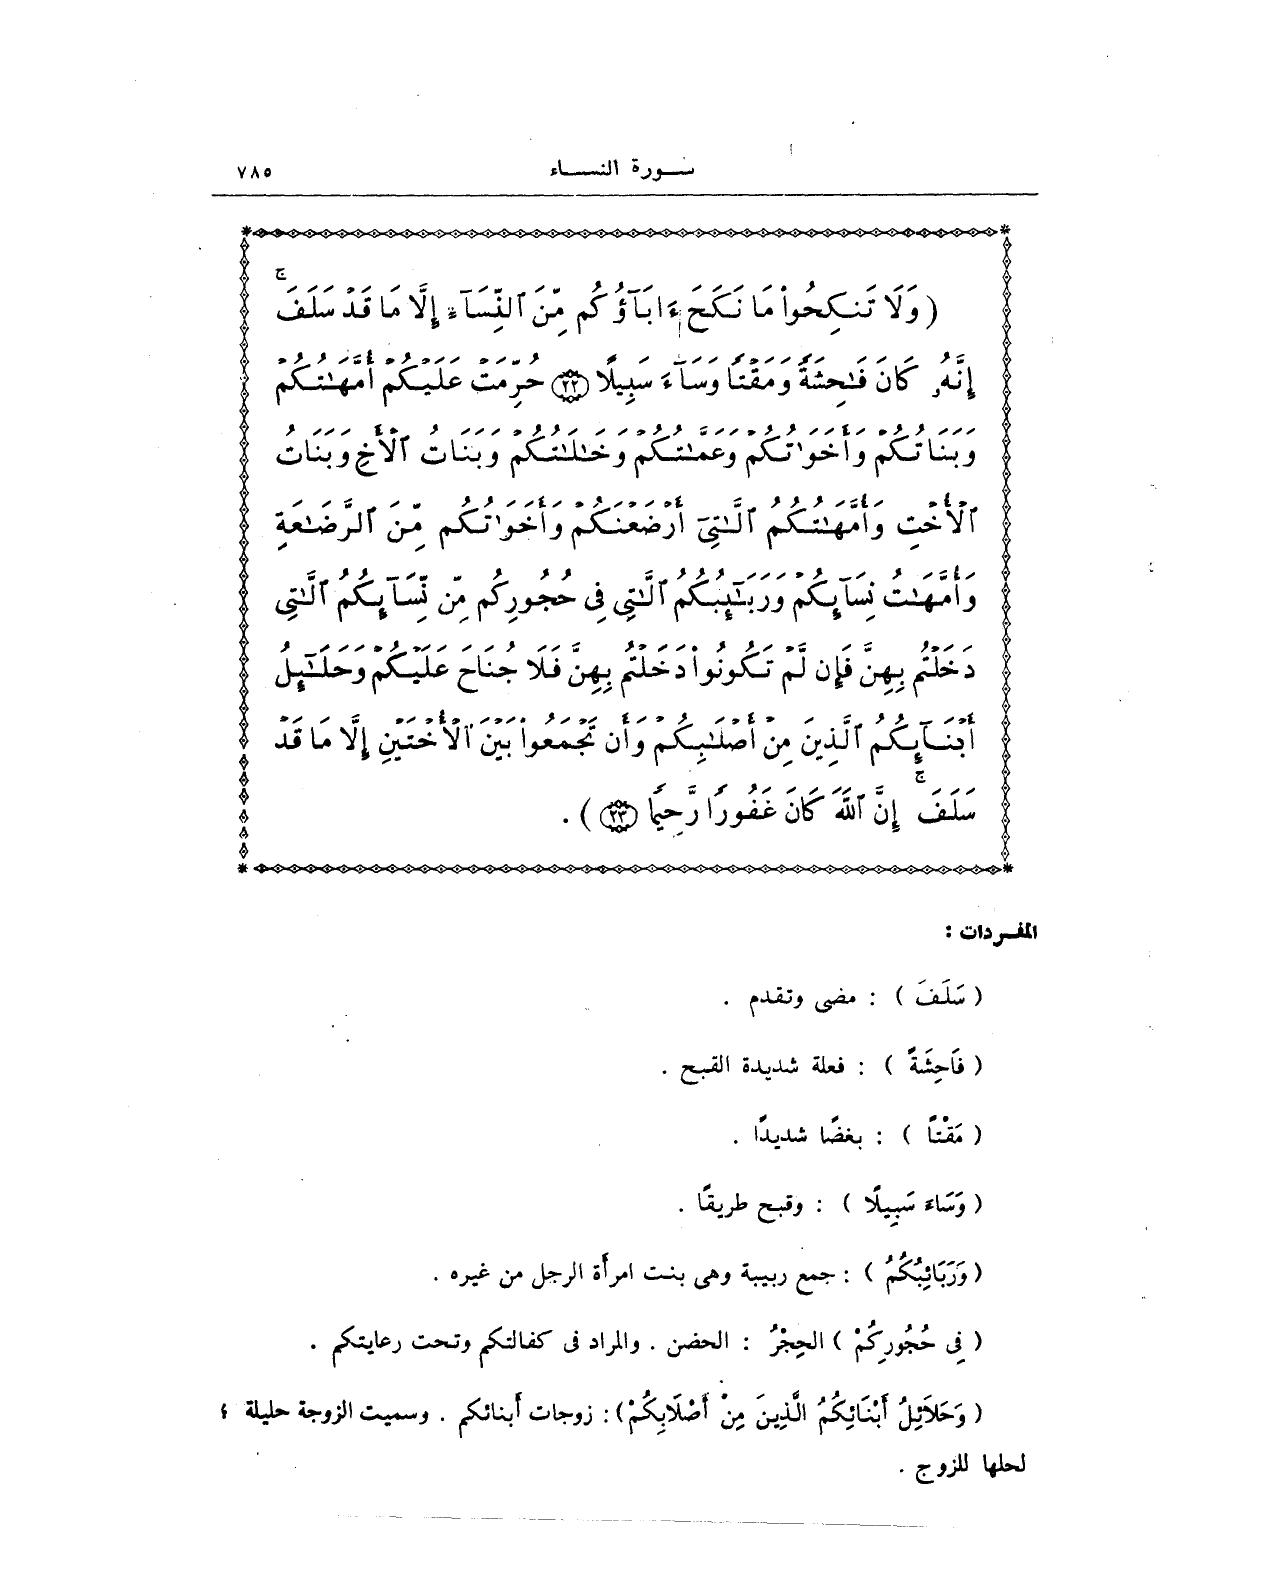 سورة النساء ٧٨٥
( وَلَا تَنكِحُوا۟ مَا نَكَحَ ءَابَآؤُكُم مِّنَ ٱلنِّسَآءِ إِلَّا مَا قَدْ سَلَفَ ۚ
إِنَّهُۥ كَانَ فَٰحِشَةً وَمَقْتًا وَسَآءَ سَبِيلًا ﴿٢٢﴾ حُرِّمَتْ عَلَيْكُمْ أُمَّهَٰتُكُمْ
وَبَنَاتُكُمْ وَأَخَوَٰتُكُمْ وَعَمَّٰتُكُمْ وَخَٰلَٰتُكُمْ وَبَنَاتُ ٱلْأَخِ وَبَنَاتُ
ٱلْأُخْتِ وَأُمَّهَٰتُكُمُ ٱلَّٰتِىٓ أَرْضَعْنَكُمْ وَأَخَوَٰتُكُم مِّنَ ٱلرَّضَٰعَةِ
وَأُمَّهَٰتُ نِسَآئِكُمْ وَرَبَٰٓئِبُكُمُ ٱلَّٰتِى فِى حُجُورِكُم مِّن نِّسَآئِكُمُ ٱلَّٰتِى
دَخَلْتُم بِهِنَّ فَإِن لَّمْ تَكُونُوا۟ دَخَلْتُم بِهِنَّ فَلَا جُنَاحَ عَلَيْكُمْ وَحَلَٰٓئِلُ
أَبْنَآئِكُمُ ٱلَّذِينَ مِنْ أَصْلَٰبِكُمْ وَأَن تَجْمَعُوا۟ بَيْنَ ٱلْأُخْتَيْنِ إِلَّا مَا قَدْ
سَلَفَ ۚ إِنَّ ٱللَّهَ كَانَ غَفُورًا رَّحِيمًا ﴿٢٣﴾ ) .
المفردات :
( سَلَفَ ) : مضى وتقدم .
( فَاحِشَةً ) : فعلة شديدة القبح .
( مَقْتًا ) : بغضًا شديدًا .
( وَسَاءَ سَبِيلًا ) : وقبح طريقًا .
( وَرَبَائِبُكُمُ ) : جمع ربيبة وهى بنت امرأة الرجل من غيره .
( فِى حُجُورِكُمْ ) الحِجْرُ : الحضن . والمراد فى كفالتكم وتحت رعايتكم .
( وَحَلَائِلُ أَبْنَائِكُمُ الَّذِينَ مِنْ أَصْلَابِكُمْ) : زوجات أبنائكم . وسميت الزوجة حليلة ؛
لحلها للزوج .